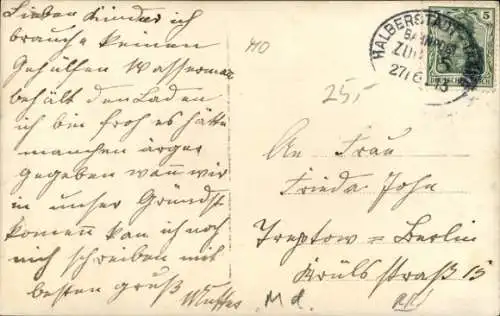 Lieben Kinder ich
brauche keinen
Gehülfen Wasserman
behält den Laden
ich bin froh es hätte
manchen ärger
gegeben wan wir
in unser Gründst
komen kan ich noch
nich schreiben mit
besten gruß
Mutter
MO
25,-
HALBERSTADT
BAHNPOST
ZUG
27/6 13
5
An Frau
Frieda John
Treptow = Berlin
Krüls straß 15
M d.